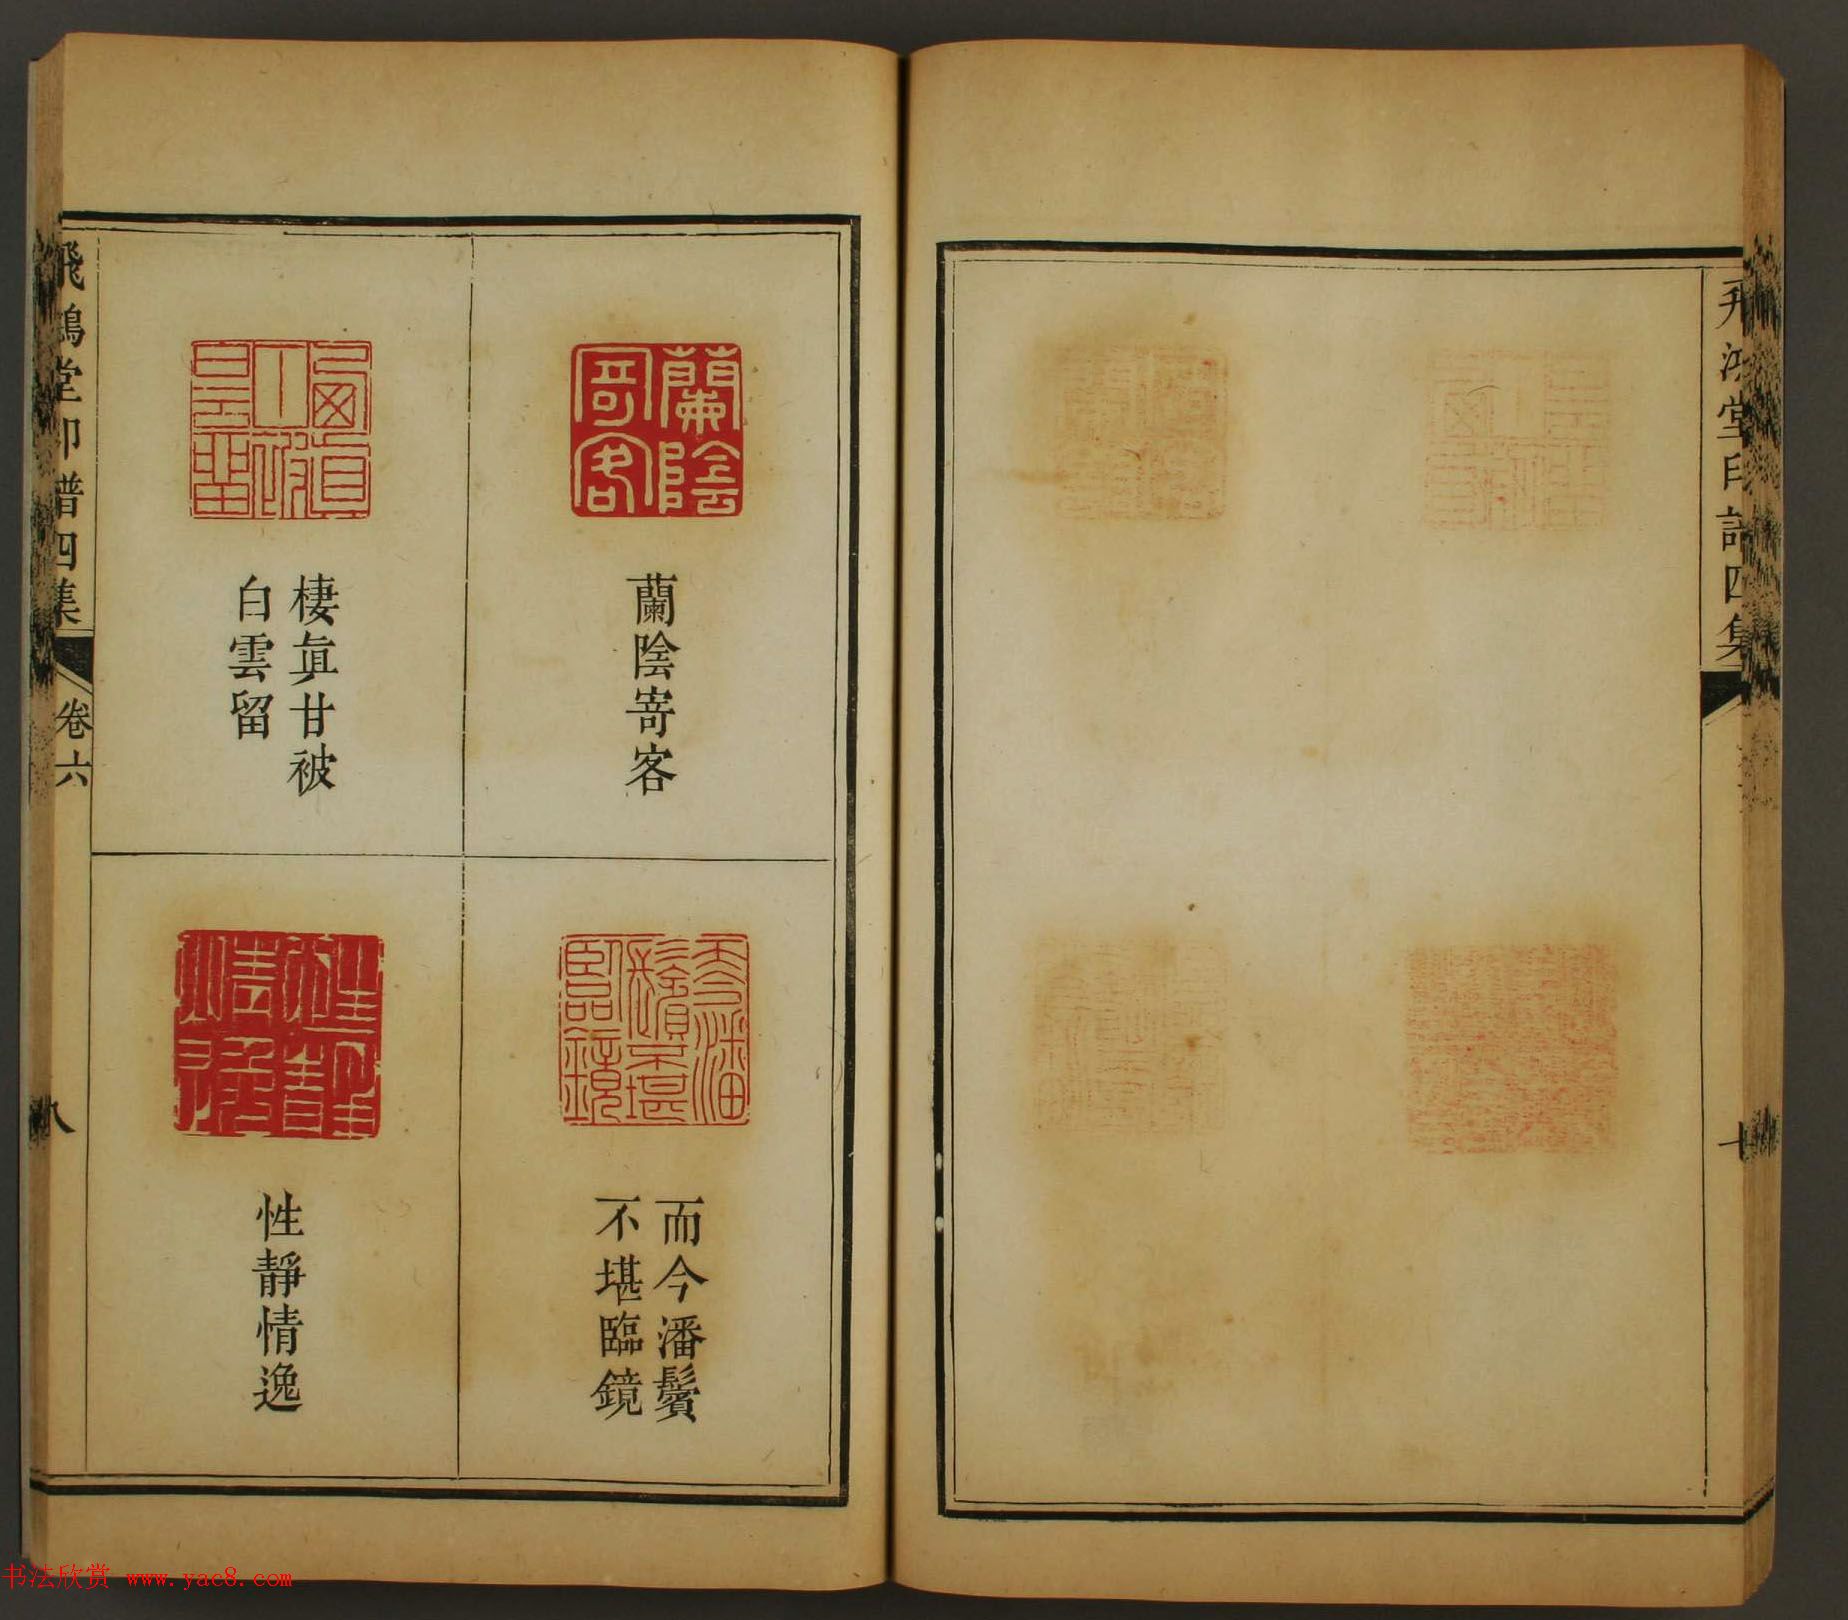 飛鴻堂印譜四集
蘭陰嵜客
棲眞甘被
白雲留
而今潘鬢
不堪臨鏡
性靜情逸
飛鴻堂印譜四集
卷六
八
书法欣赏 www.yac8.com